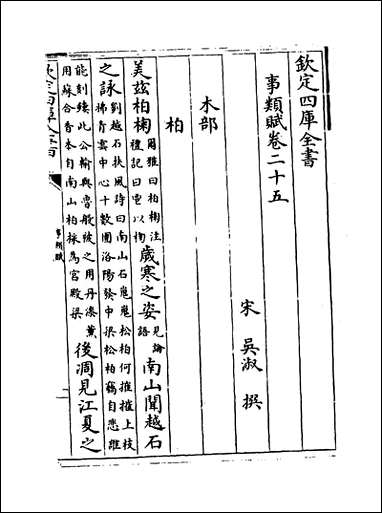 欽定四庫全書
事類賦卷二十五
宋 吳淑 撰
木部
柏
美兹柏椈爾雅曰柏椈注禮記曰鬯以椈歲寒之姿見論語南山聞越石
之詠劉越石扶風詩曰南山石嵬嵬松柏何摧摧上枝拂青雲中心十數圍洛陽發中梁松柏竊自悲誰
能刻鏤此公輸與魯般被之用丹漆薰用蘇合香本自南山柏採為宮殿梁後凋見江夏之
欽定四庫全書
事類賦